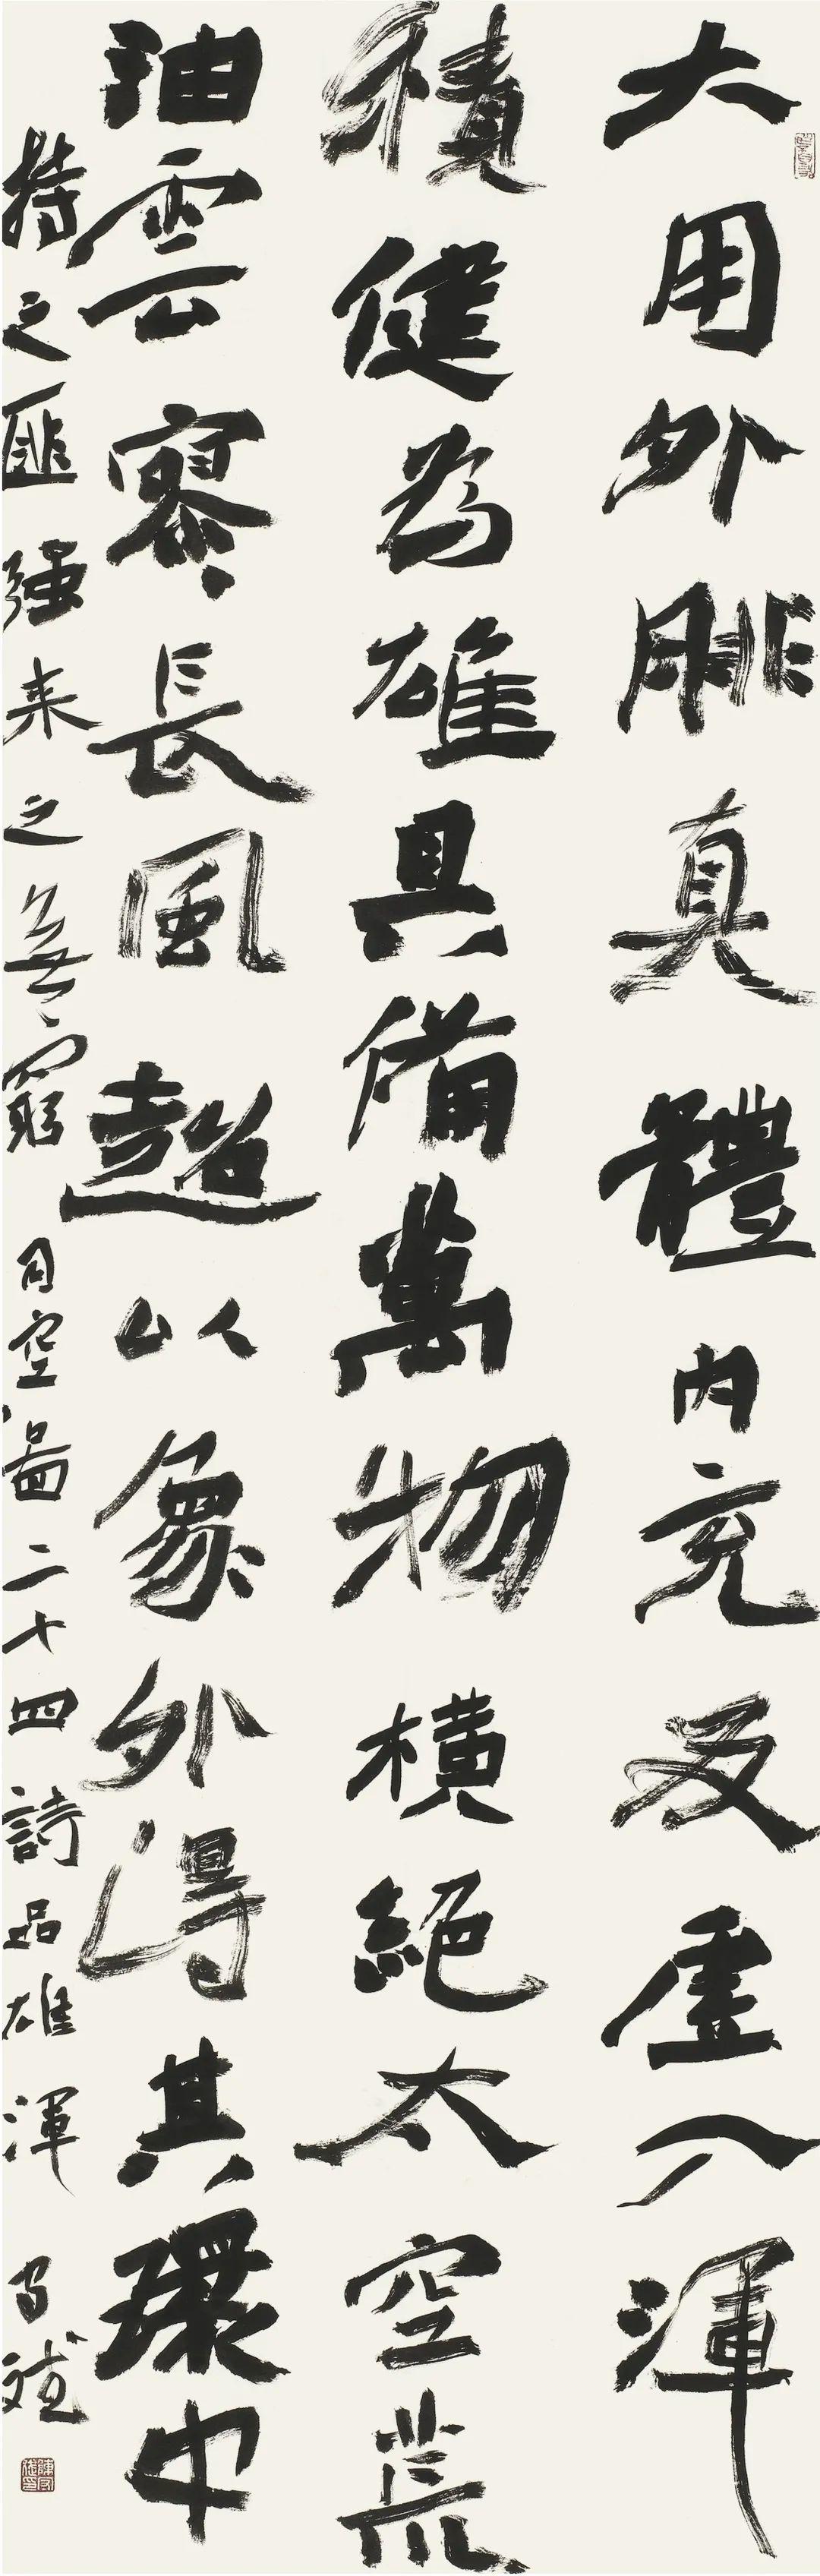 大用外腓真體內充反虛入渾
積健為雄具備萬物橫絕太空荒
油雲寥々長風超以象外得其環中
持之匪强来之無窮 司空圖二十四詩品雄渾